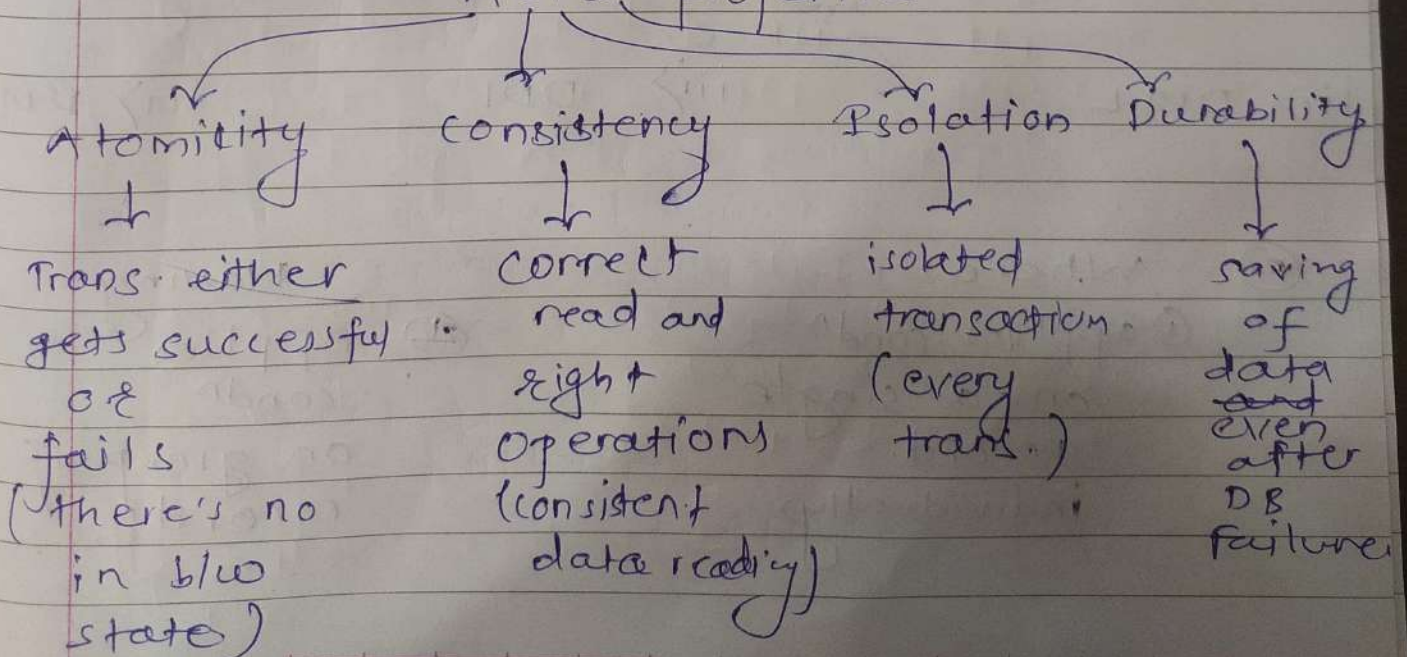 Atomicity
Trans. either
gets successful
or
fails
(there's no
in b/w
state)
Consistency
correct
read and
right
operations
(consistent
data reading)
Isolation
isolated
transaction.
(every
trans.)
Durability
saving
of
data
and
even
after
DB
failure